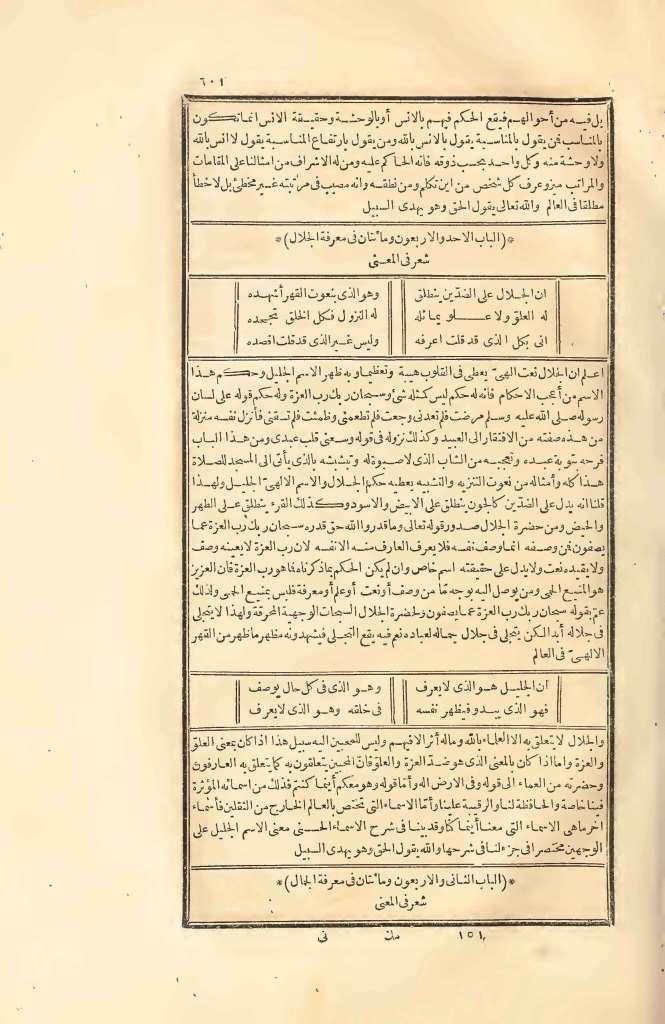 ٦٠١
بل فيه من أحوالهم فيقع الحكم فيهم بالانس أو بالوحشة وحقيقة الانس انما تكون
بالمناسب فمن يقول بالمناسبة يقول بالانس بالله ومن يقول بارتفاع المناسبة يقول لا انس بالله
ولا وحشة منه وكل واحد بحسب ذوقه فانه الحاكم عليه ومن له الاشراف من امثالنا على المقامات
والمراتب ميز وعرف كل شخص من اين تكلم ومن نطقه وانه مصيب فى مرتبته غير مخطئ بل لا خطأ
مطلقا فى العالم والله تعالى يقول الحق وهو يهدى السبيل
*(الباب الاحد والاربعون ومائتان فى معرفة الجلال)*
شعر فى المعنى
ان الجلال على الضدّين ينطلق وهو الذى بنعوت القهر أشهده
له العلوّ ولا علو يماثله له النزول فكل الخلق تجحده
انى بكل الذى قد قلت اعرفه وليس غير الذى قد قلت اقصده
اعلم ان الجلال نعت الهىّ يعطى فى القلوب هيبة وتعظيما وبه ظهر الاسم الجليل وحكم هذا
الاسم من أعجب الاحكام فانه له حكم ليس كمثله شئ وسبحان ربك رب العزة وله حكم قوله على لسان
رسوله صلى الله عليه وسلم مرضت فلم تعدنى وجعت فلم تطعمنى وظمئت فلم تسقنى فأنزل نفسه منزلة
من هذه صفته من الافتقار الى العبيد وكذلك نزوله فى قوله وسعنى قلب عبدى ومن هذا الباب
فرحه بتوبة عبده وتعجبه من الشاب الذى لا صبوة له وتبشبشه بالذى يأتى الى المسجد للصلاة
هذا كله وأمثاله من نعوت التنزيه والتشبيه يعطيه حكم الجلال والاسم الالهىّ الجليل ولهذا
قلنا انه يدل على الضدّين كالجون ينطلق على الابيض والاسود وكذلك القرء ينطلق على الطهر
والحيض ومن حضرة الجلال صدور قوله تعالى وما قدروا الله حق قدره سبحان ربك رب العزة عما
يصفون فمن وصفه انما وصف نفسه فلا يعرف العارف منه الا نفسه لان رب العزة لا يعينه وصف
ولا يقيده نعت ولا يدل على حقيقته اسم خاص وان لم يكن الحكم بماذكرناه فما هو رب العزة فان العزيز
هو المنيع الحمى ومن يوصل اليه بوجه مّا من وصف أو نعت أو علم أو معرفة فليس بمنيع الحمى ولذلك
عم بقوله سبحان ربك رب العزة عما يصفون ولحضرة الجلال السبحات الوجهية المحرقة ولهذا لا يتجلى
فى جلاله أبدا لكن يتجلى فى جلال جماله لعباده نعم فيه يقع التجلى فيشهدونه مظهر ما ظهر من القهر
الالهىّ فى العالم
ان الجليل هو الذى لا يعرف وهو الذى فى كل حال يوصف
فهو الذى يبدو فيظهر نفسه فى خلقه وهو الذى لا يعرف
والجلال لا يتعلق به الا العلماء بالله وماله أثر الا فيهم وليس للمحبين اليه سبيل هذا اذا كان بمعنى العلوّ
والعزة واما اذا كان بالمعنى الذى هو ضد العزة والعلوّ فانّ المحبين يتعلقون به كما يتعلق به العارفون
وحضرته من العماء الى قوله وفى الارض اله وأما قوله وهو معكم أينما كنتم فذلك من اسمائه المؤثرة
فينا خاصة والحافظة لنا والرقيبة علينا وأمّا الاسماء التى تختص بالعالم الخارج من الثقلين فأسماء
أخر ما هى الاسماء التى معنا أينما كنّا وقد بينا فى شرح الاسماء الحسنى معنى الاسم الجليل على
الوجهين مختصرا فى جزء لنا فى شرحها والله يقول الحق وهو يهدى السبيل
*(الباب الثانى والاربعون ومائتان فى معرفة الجمال)*
شعر فى المعنى
١٥١ مك نى